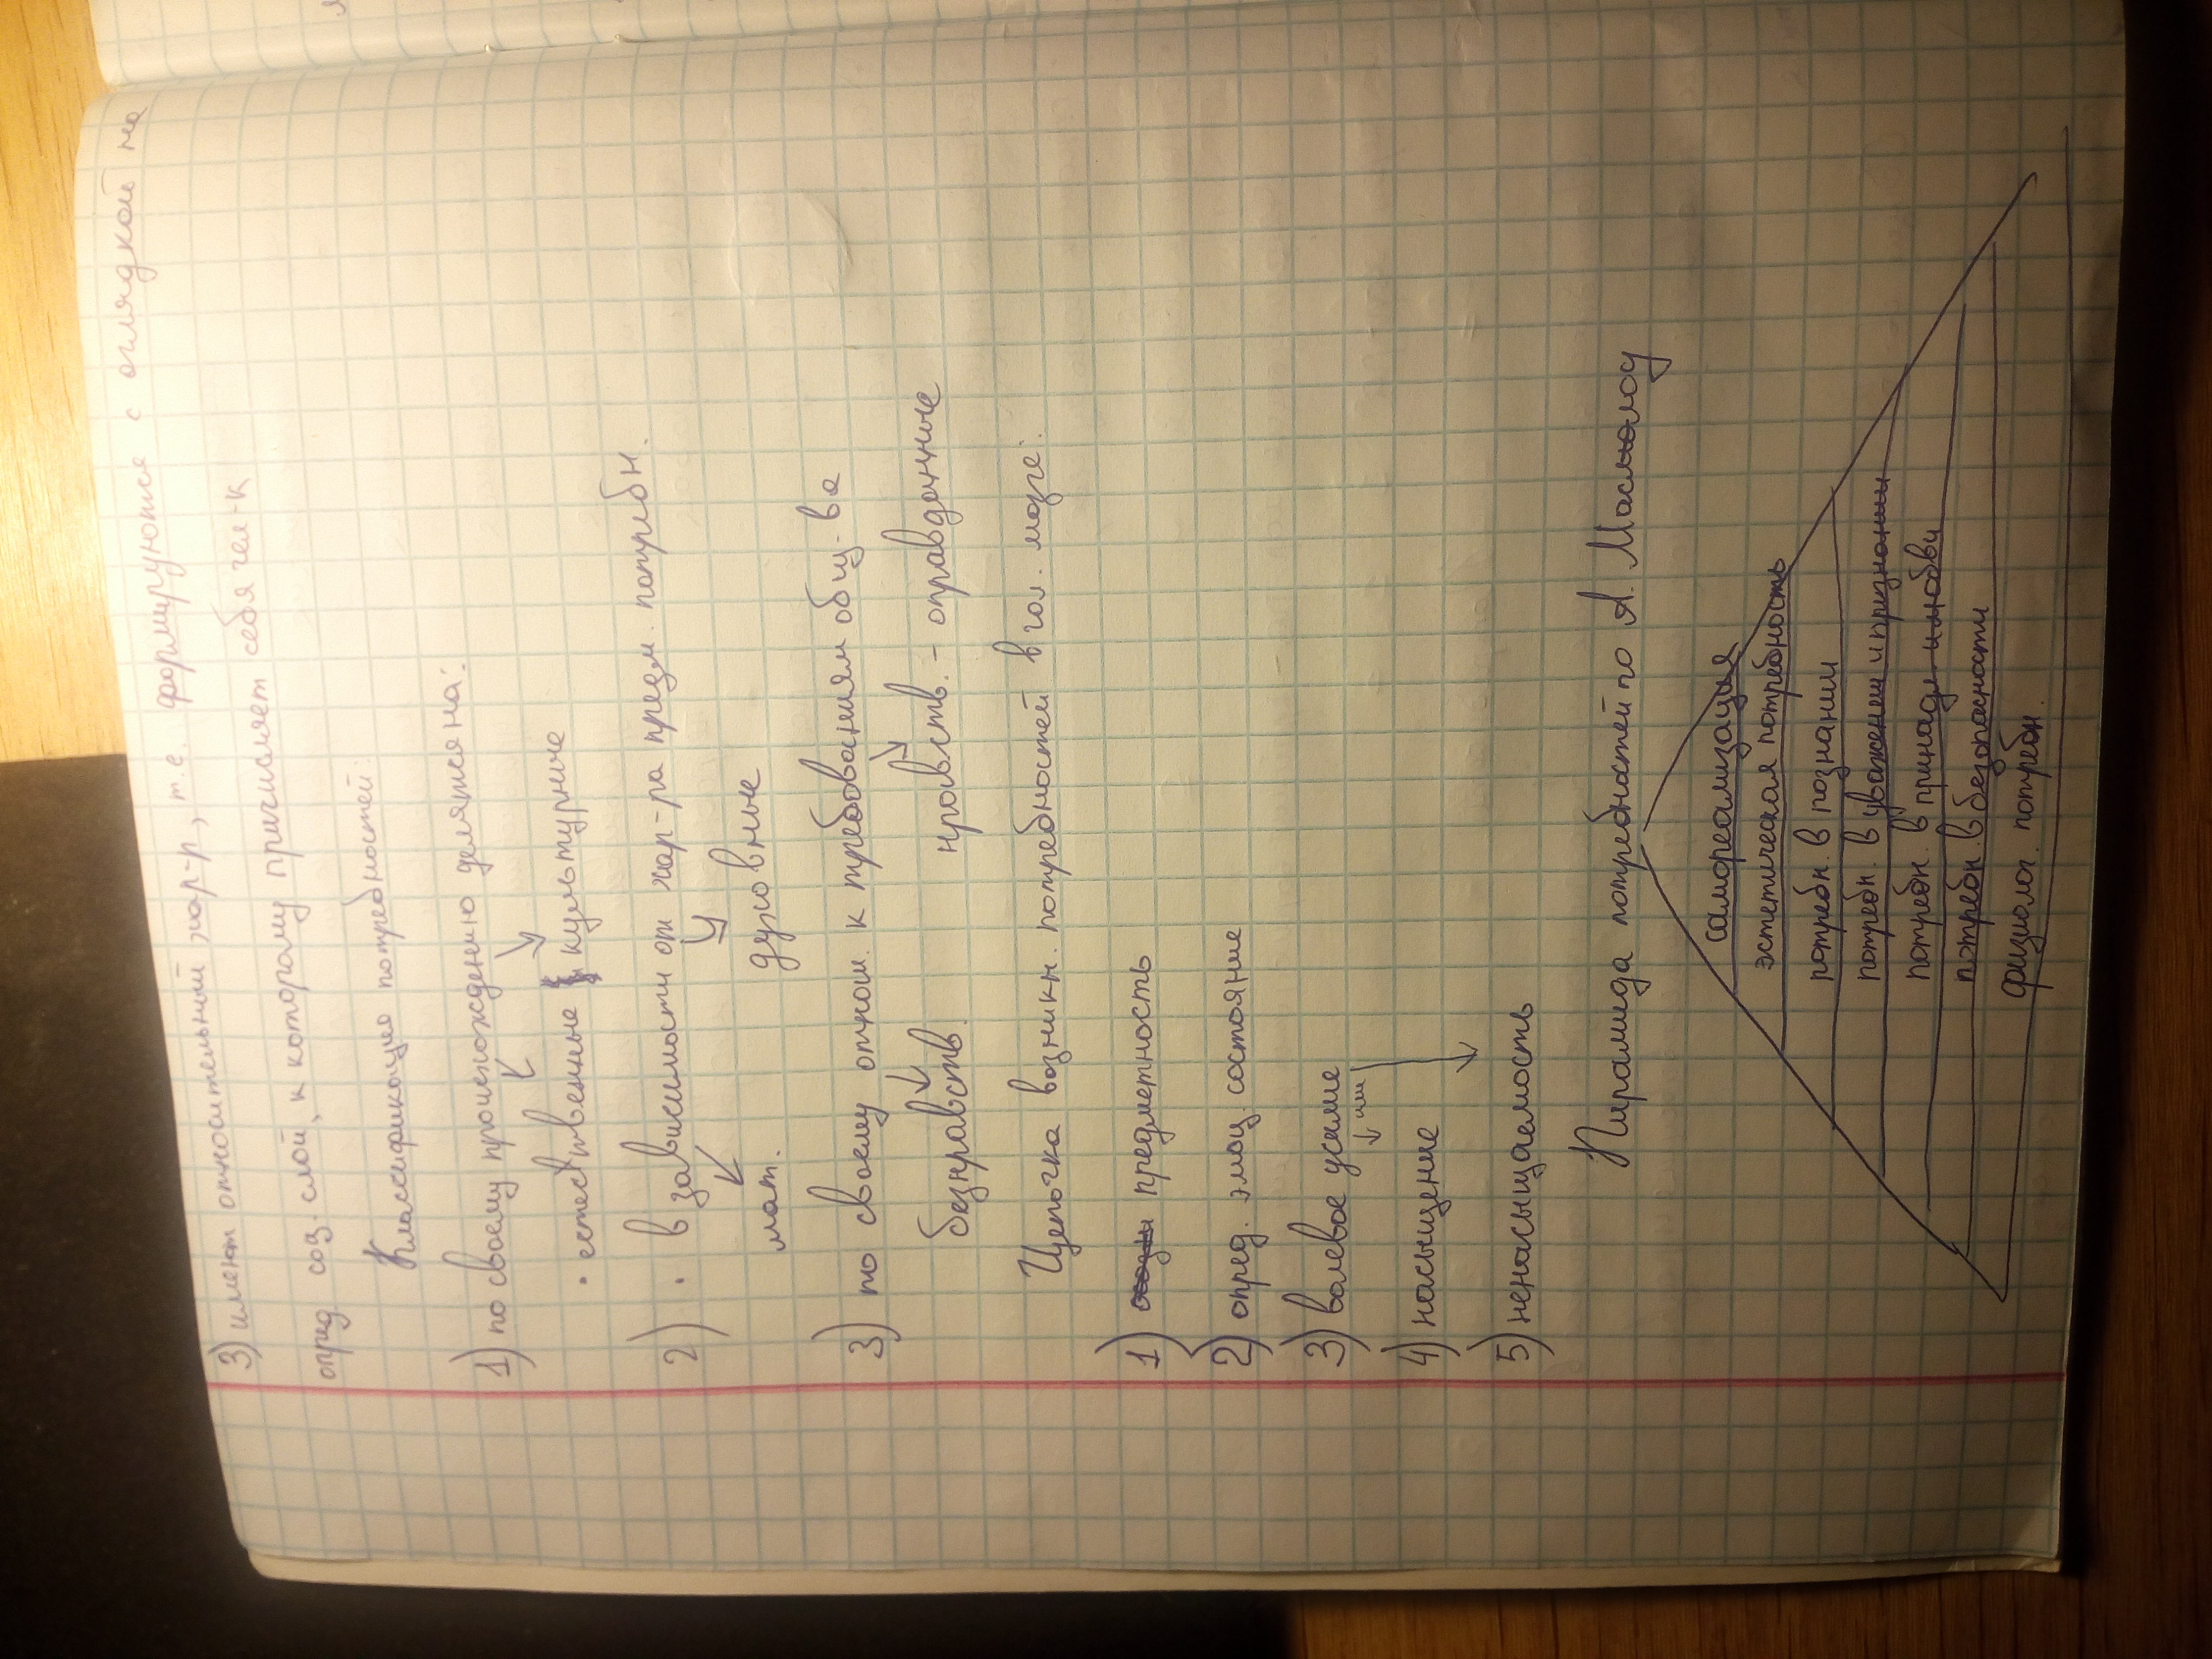 3) имеют относительный хар-р, т.е. формируются с оглядкой на
опред. соц. слой, к которому причисляет себя чел-к
Классификация потребностей:
1) по своему происхождению делятся на:
• естественные культурные
2) • в зависимости от хар-ра предм. потребн.
мат. духовные
3) по своему отнош. к требованиям общ-ва
безнравств. нравств. - оправданные
Цепочка возникн. потребностей в гол. мозге:
1) предметность
2) опред. эмоц. состояние
3) волевое усилие
или
4) насыщение
5) ненасыщаемость
Пирамида потребностей по А. Маслоу
самореализация
эстетическая потребность
потребн. в познании
потребн. в уважении и признании
потребн. в принадл. и любви
потребн. в безопасности
физиолог. потребн.